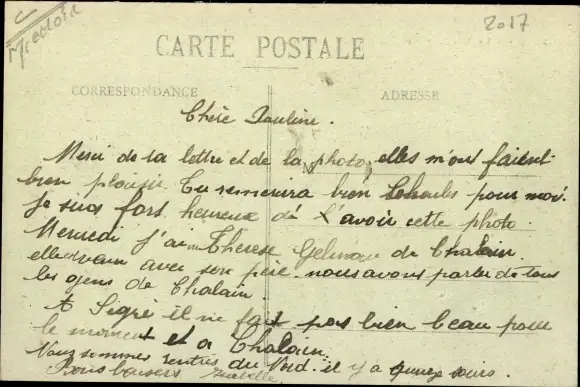 2017
CARTE POSTALE
CORRESPONDANCE
ADRESSE
Chère Pauline.
Merci de ta lettre et de la photo, elles m'ont faient
bien plaisir. Tu remercira bien pour moi.
Je suis fort heureux de l'avoir cette photo.
Mercredi j'ai Thérèse de Chalain.
elle avec son père. nous avons parler de tous
les gens de Chalain.
A Segré il ne fait pas bien beau pour
le moment et a Chalain.
Nous sommes rentrés du Nord. il y a quinze jours.
Bons baisers